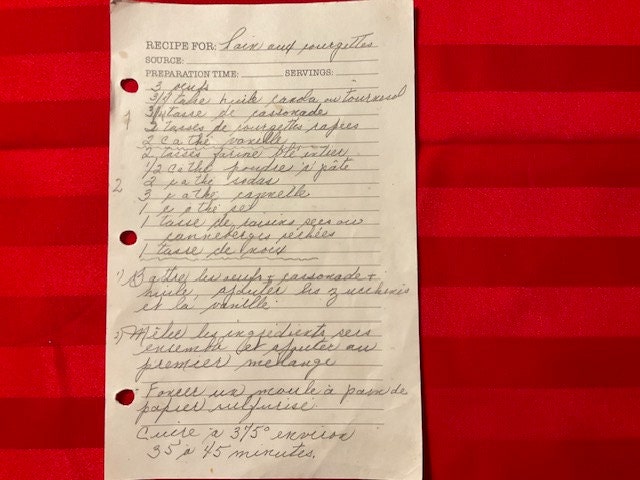 RECIPE FOR: Pain aux courgettes
SOURCE:
PREPARATION TIME: SERVINGS:
3 oeufs
3/4 tasse huile canola ou tournesol
3/4 tasse de cassonade
2 tasses de courgettes rapées
2 c à thé vanille
2 tasses farine blé entier
1/2 c à thé poudre à pâte
2 c à thé sodas
3 c à thé cannelle
1 c à thé sel
1 tasse de raisins secs ou
canneberges séchées
1 tasse de noix
1) Battre les oeufs + cassonade +
huile, ajouter les zucchinis
et la vanille
2) Mêler les ingrédients secs
ensemble et ajouter au
premier mélange
- Foncer un moule à pain de
papier sulfurisé.
Cuire à 375° environ
35 à 45 minutes.